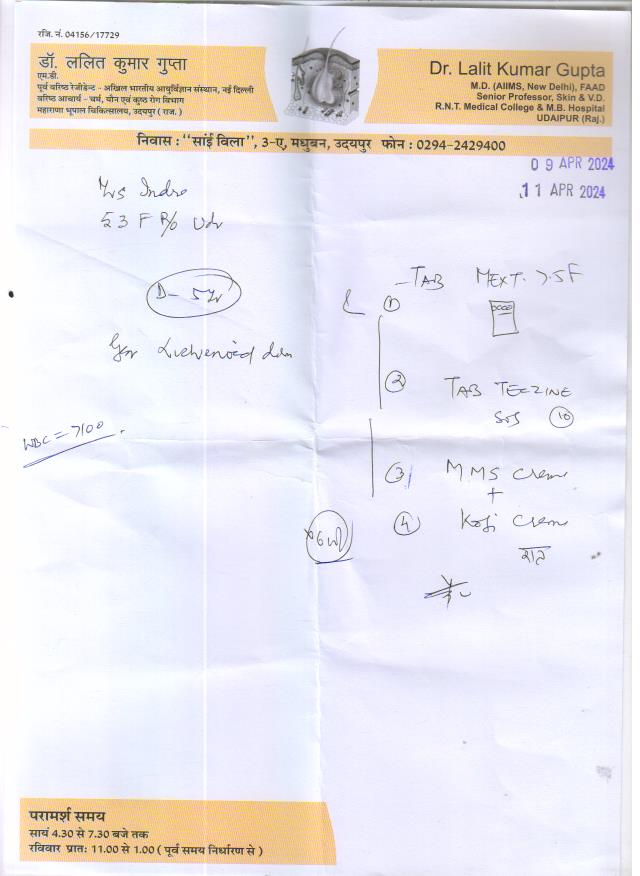 रजि. नं. 04156/17729
डॉ. ललित कुमार गुप्ता
एम.डी.
पूर्व वरिष्ठ रेजीडेन्ट - अखिल भारतीय आयुर्विज्ञान संस्थान, नई दिल्ली
वरिष्ठ आचार्य - चर्म, यौन एवं कुष्ठ रोग विभाग
महाराणा भूपाल चिकित्सालय, उदयपुर ( राज. )
Dr. Lalit Kumar Gupta
M.D. (AIIMS, New Delhi), FAAD
Senior Professor, Skin & V.D.
R.N.T. Medical College & M.B. Hospital
UDAIPUR (Raj.)
निवास : ‘‘सांई विला’’, 3-ए, मधुबन, उदयपुर फोन : 0294-2429400
09 APR 2024
11 APR 2024
Mrs Indra
53 F R/o Udr
TAB MEXT 7.5
①
② TAB TECZINE
SOS ⑩
WBC = 7100
③ MMS Creme
+
④ Koji Creme
रात
परामर्श समय
सायं 4.30 से 7.30 बजे तक
रविवार प्रातः 11.00 से 1.00 ( पूर्व समय निर्धारण से )